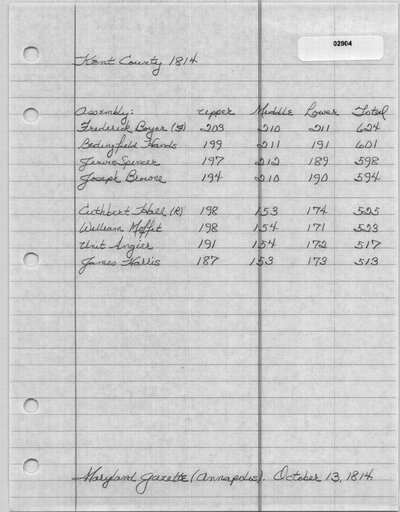 02904
Kent County 1814
Assembly: Upper Middle Lower Total
Frederick Boyer (F) 203 210 211 624
Bedingfield Hands 199 211 191 601
Jervis Spencer 197 212 189 598
Joseph Browne 194 210 190 594
Cuthbert Hall (R) 198 153 174 525
William Moffit 198 154 171 523
Unit Angier 191 154 172 517
James Harris 187 153 173 513
Maryland Gazette (Annapolis). October 13, 1814